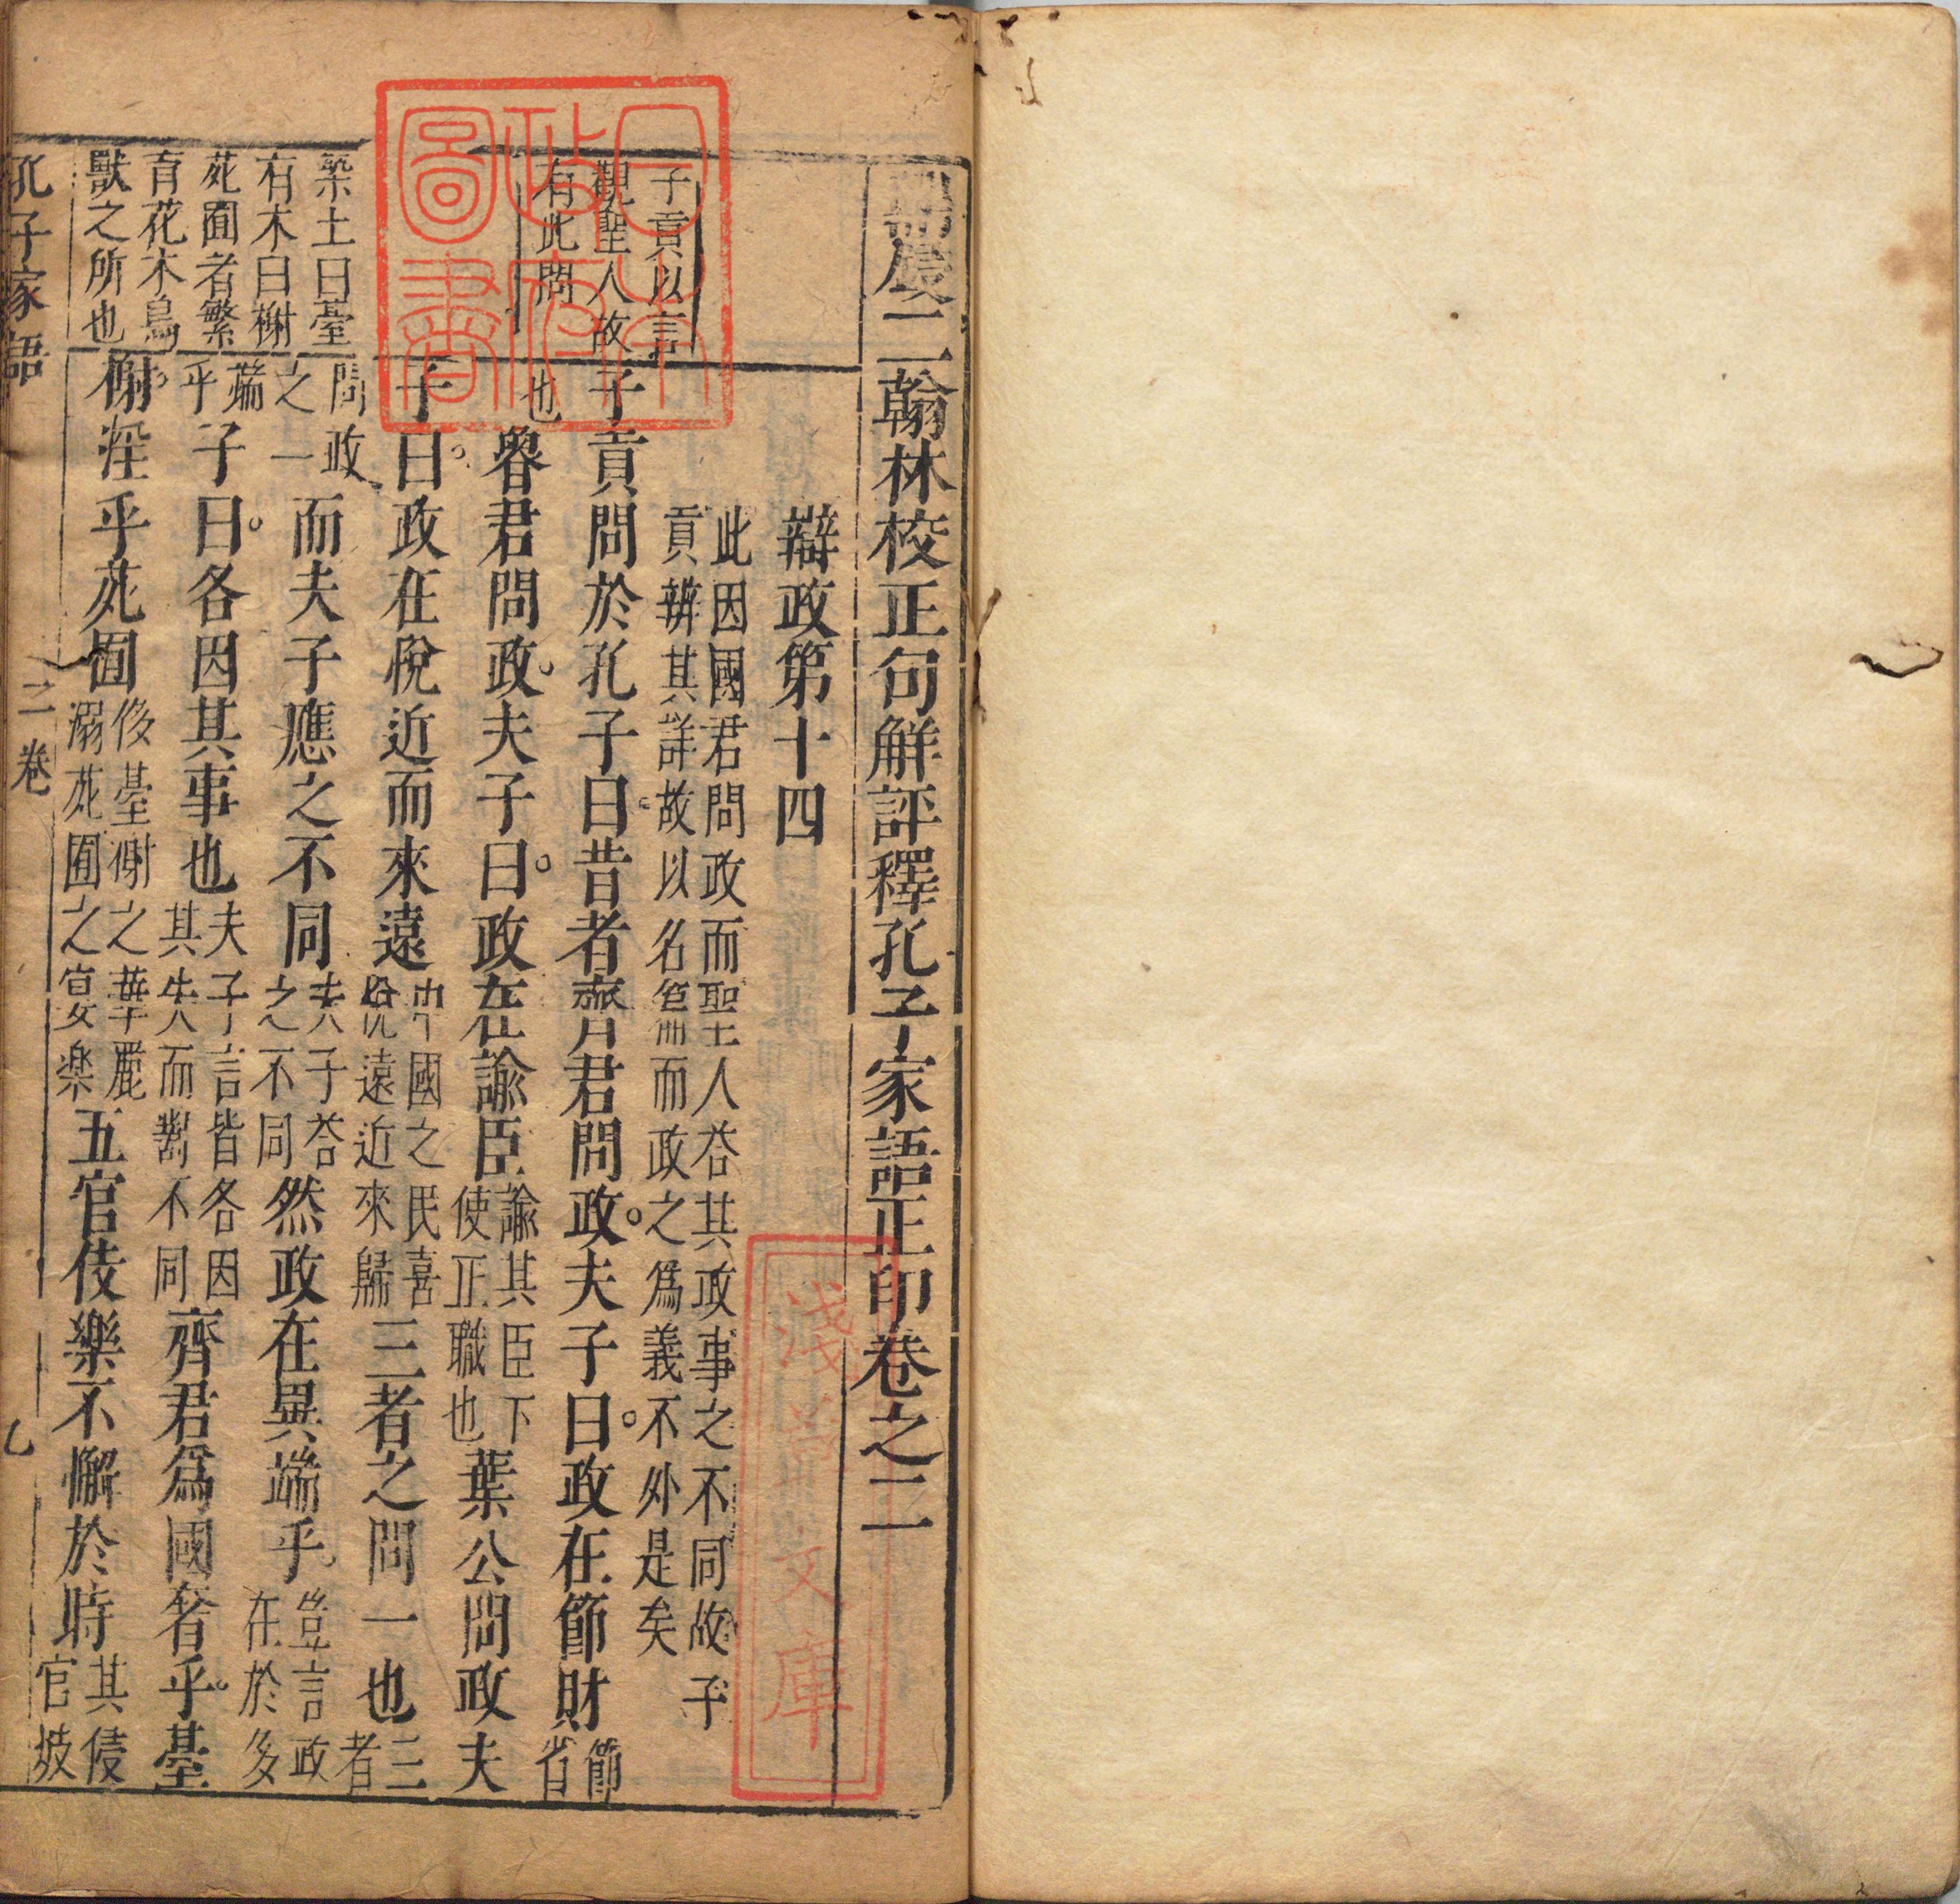 二翰林校正句觧評釋孔子家語正印卷之二
辯政第十四
此因國君問政而聖人荅其政事之不同故子
貢辨其詳故以名篇而政之爲義不外是矣
子貢以言
觀聖人故
有此問
子貢問於孔子曰昔者齊君問政夫子曰政在節財節
省
也魯君問政夫子曰政在諭臣諭其臣下
使正職也葉公問政夫
子曰政在悅近而來遠中國之民喜
悅遠近來歸三者之問一也三
者
築土曰臺
有木曰榭
苑囿者繁
育花木鳥
獸之所也
問政
之一而夫子應之不同夫子荅
之不同然政在異端乎豈言政
在於多
端
乎子曰各因其事也夫子言皆各因
其失而對不同齊君爲國奢乎臺
榭淫乎苑囿侈臺榭之華麗
溺苑囿之宴楽五官伎樂不懈於時其侵
官坡
孔子家語
二卷
乙
淺草文庫
圖書